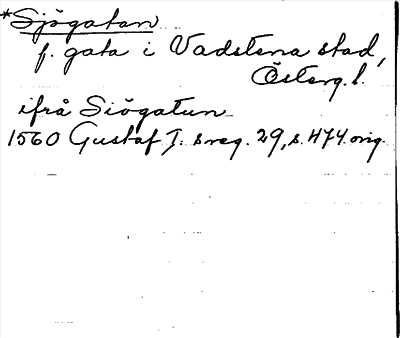 *Sjögatan
f. gata i Vadstena stad,
Österg. l.
ifrå Siögatun
1560 Gustaf I. s reg. 29, s. 474 orig.